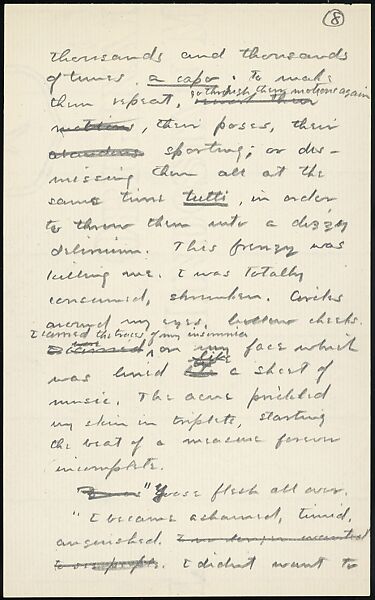 8
thousands and thousands
of times, a capo; to make
them repeat, go through their motions again
, their poses, their
sporting; or dis-
missing them all at the
same time tutti, in order
to throw them into a dizzy
delirium. This frenzy was
killing me. I was totally
consumed, shrunken. Circles
around my eyes, hollow cheeks.
I carried the traces of my insomnia
on my face which
was lined like a sheet of
music. The acne prickled
my skin in triplets, starting
the beat of a measure forever
incomplete.
"Goose flesh all over.
"I became ashamed, timid,
anguished.
I didn't want to